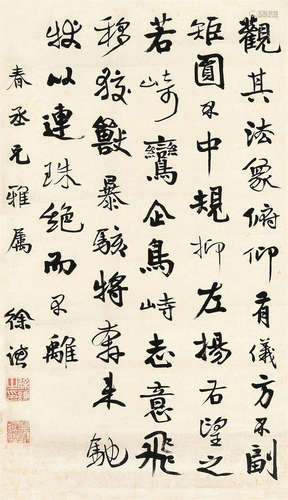 觀其法象俯仰有儀方不副
矩圓不中規抑左揚右望之
若崎鸞企鳥峙志意飛
移狡獸暴駭將奔未馳
狀以連珠絕而不離
春丞兄雅屬 徐